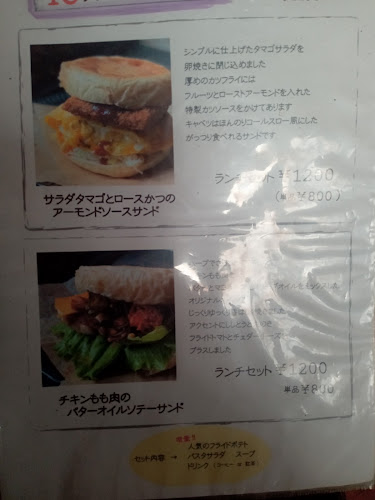 シンプルに仕上げたタマゴサラダを
卵焼きに閉じ込めました
厚めのカツフライには
フルーツとローストアーモンドを入れた
特製カツソースをかけてあります
キャベツはほんのりコールスロー風にした
がっつり食べれるサンドです
ランチセット ¥1200
(単品 ¥800)
サラダタマゴとロースかつの
アーモンドソースサンド
オリジナル
じっくりゆっくり
アクセントにししとうと
フライドトマトとチェダーチーズ
プラスしました
ランチセット ¥1200
単品 ¥800
チキンもも肉の
バターオイルソテーサンド
人気のフライドポテト
セット内容 → パスタサラダ スープ
ドリンク